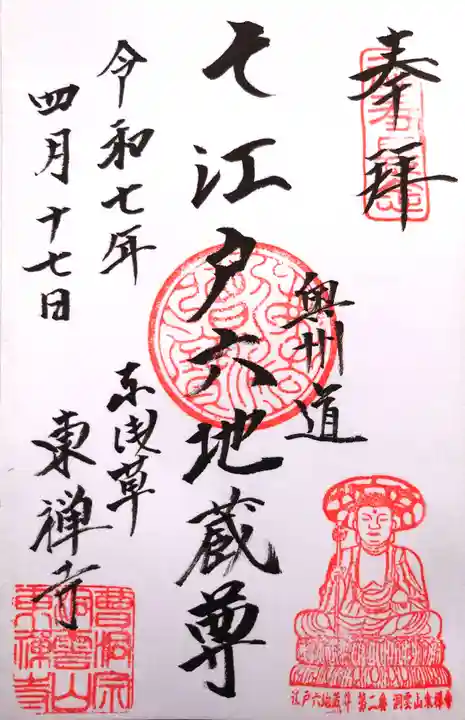 奉拝
奥州道
江戸六地蔵尊
令和七年
四月十七日
東浅草
東禅寺
江戸六地蔵尊 第二番 洞雲山東禅寺
曹洞宗
洞雲山
東禅寺